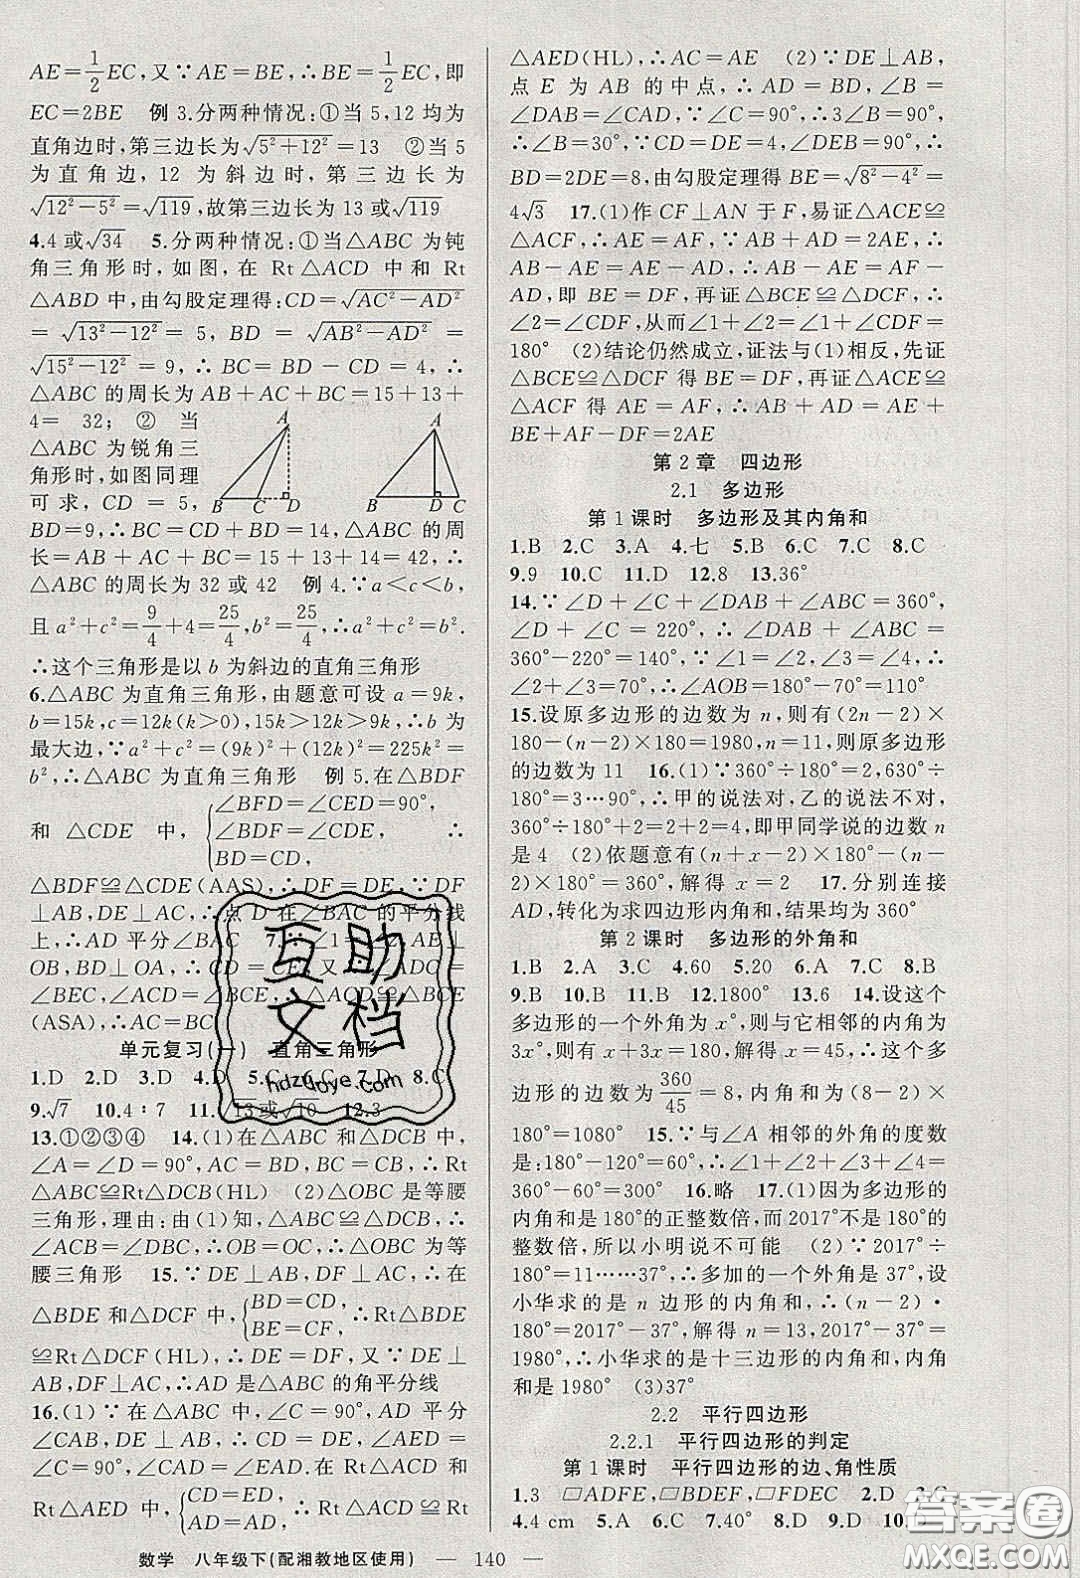 AE=1/2EC,又∵AE=BE,∴BE=1/2EC,即
EC=2BE 例 3.分两种情况:①当 5,12 均为
直角边时,第三边长为√(5²+12²)=13 ②当 5
为直角边,12 为斜边时,第三边长为
√(12²-5²)=√119,故第三边长为 13 或√119
4.4 或√34 5.分两种情况:①当△ABC 为钝
角三角形时,如图,在 Rt△ACD 中和 Rt
△ABD 中,由勾股定理得:CD=√(AC²-AD²)
=√(13²-12²)=5,BD=√(AB²-AD²)=
√(15²-12²)=9,∴BC=BD-CD=4,∴
△ABC 的周长为 AB+AC+BC=15+13+
4=32;② 当
△ABC 为锐角三
角形时,如图同理
可求,CD=5,
A
B C D
A
B D C
BD=9,∴BC=CD+BD=14,△ABC 的周
长=AB+AC+BC=15+13+14=42,∴
△ABC 的周长为 32 或 42 例 4.∵a<c<b,
且 a²+c²=9/4+4=25/4,b²=25/4,∴a²+c²=b².
∴这个三角形是以 b 为斜边的直角三角形
6.△ABC 为直角三角形,由题意可设 a=9k,
b=15k,c=12k(k>0),15k>12k>9k,∴b 为
最大边,∵a²+c²=(9k)²+(12k)²=225k²=
b²,∴△ABC 为直角三角形 例 5.在△BDF
和△CDE 中,{∠BFD=∠CED=90°,
∠BDF=∠CDE, ∴
BD=CD,
△BDF≌△CDE(AAS),∴DF=DE,∵DF
⊥AB,DE⊥AC,∴点 D 在∠BAC 的平分线
上,∴AD 平分∠BAC 7.∵AE⊥
OB,BD⊥OA,∴∠ADC=
∠BEC,∠ACD=∠BCE,∴△ACD≌△BCE
(ASA),∴AC=BC
单元复习(一) 直角三角形
1.D 2.D 3.D 4.D 5.C 6.C 7.D 8.C
9.√7 10.4∶7 11.√13或√10 12.3
13.①②③④ 14.(1)在△ABC 和△DCB 中,
∠A=∠D=90°,AC=BD,BC=CB,∴Rt
△ABC≌Rt△DCB(HL) (2)△OBC 是等腰
三角形,理由:由(1)知,△ABC≌△DCB,
∴∠ACB=∠DBC,∴OB=OC,∴△OBC 为等
腰三角形 15.∵DE⊥AB,DF⊥AC,∴在
△BDE 和△DCF 中,{BD=CD,
BE=CF, ∴Rt△BDE
≌Rt△DCF(HL),∴DE=DF,又∵DE⊥
AB,DF⊥AC,∴AD 是△ABC 的角平分线
16.(1)∵在△ABC 中,∠C=90°,AD 平分
∠CAB,DE⊥AB,∴CD=ED,∠DEA=
∠C=90°,∠CAD=∠EAD.在Rt△ACD 和
Rt△AED 中,{CD=ED,
AD=AD, ∴Rt△ACD≌Rt
△AED(HL),∴AC=AE (2)∵DE⊥AB,
点 E 为 AB 的中点,∴AD=BD,∠B=
∠DAB=∠CAD,∵∠C=90°,∴3∠B=90°,
∴∠B=30°,∵CD=DE=4,∠DEB=90°,∴
BD=2DE=8,由勾股定理得 BE=√(8²-4²)=
4√3 17.(1)作 CF⊥AN 于 F,易证△ACE≌
△ACF,∴AE=AF,∵AB+AD=2AE=
AE+AF,∴AB+AD-AE=AF,AE-AB=AF-
AD,即 BE=DF,再证△BCE≌△DCF,∴
∠2=∠CDF,从而∠1+∠2=∠1+∠CDF=
180° (2)结论仍然成立,证法与(1)相反,先证
△BCE≌△DCF 得 BE=DF,再证△ACE≌
△ACF 得 AE=AF,∴AB+AD=AE+
BE+AF-DF=2AE
第 2 章 四边形
2.1 多边形
第 1 课时 多边形及其内角和
1.B 2.C 3.A 4.七 5.B 6.C 7.C 8.C
9.9 10.C 11.D 12.8 13.36°
14.∵∠D+∠C+∠DAB+∠ABC=360°,
∠D+∠C=220°,∴∠DAB+∠ABC=
360°-220°=140°,∵∠1=∠2,∠3=∠4,
∴∠2+∠3=70°,∴∠AOB=180°-70°=110°
15.设原多边形的边数为 n,则有(2n-2)×
180-(n-2)×180=1980,n=11,则原多边形
的边数为 11 16.(1)∵360°÷180°=2,630°÷
180°=3…90°,∴甲的说法对,乙的说法不对,
360°÷180°+2=2+2=4,即甲同学说的边数 n
是 4 (2)依题意有(n+x-2)×180°-(n-
2)×180°=360°,解得 x=2 17.分别连接
AD,转化为求四边形内角和,结果均为 360°
第 2 课时 多边形的外角和
1.B 2.A 3.C 4.60 5.20 6.A 7.C 8.B
9.B 10.B 11.B 12.1800° 13.6 14.设这个
多边形的一个外角为 x°,则与它相邻的内角为
3x°,则有 x+3x=180,解得 x=45,∴这个多
边形的边数为360/45=8,内角和为(8-2)×
180°=1080° 15.∵与∠A 相邻的外角的度数
是:180°-120°=60°,∴∠1+∠2+∠3+∠4=
360°-60°=300° 16.略 17.(1)因为多边形的
内角和是 180°的正整数倍,而 2017°不是 180°的
整数倍,所以小明说不可能 (2)∵2017°÷
180°=11……37°,∴多加的一个外角是 37°,设
小华求的是 n 边形的内角和,∴(n-2)·
180°=2017°-37°,解得 n=13,2017°-37°=
1980°,∴小华求的是十三边形的内角和,内角
和是 1980° (3)37°
2.2 平行四边形
2.2.1 平行四边形的判定
第 1 课时 平行四边形的边、角性质
1.3 ▱ADFE,▱BDEF,▱FDEC 2.D 3.C
4.4 cm 5.C 6.C 7.40° 8.D 9.D
互助
文档
hdzuoye.com
答案圈
数学 八年级下(配湘教地区使用) — 140 —